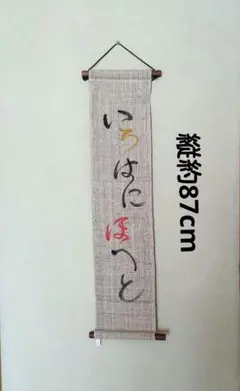 いろはにほへと
縦約87cm